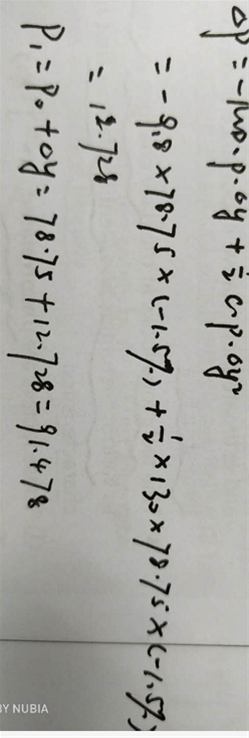 Δp = -MD·p·Δy + ½ C·p·Δy²
= -9.8 × 78.75 × (-1.5%) + ½ × 130 × 78.75 × (-1.5%)
= 12.728
P₁ = P₀ + Δy = 78.75 + 12.728 = 91.478
BY NUBIA